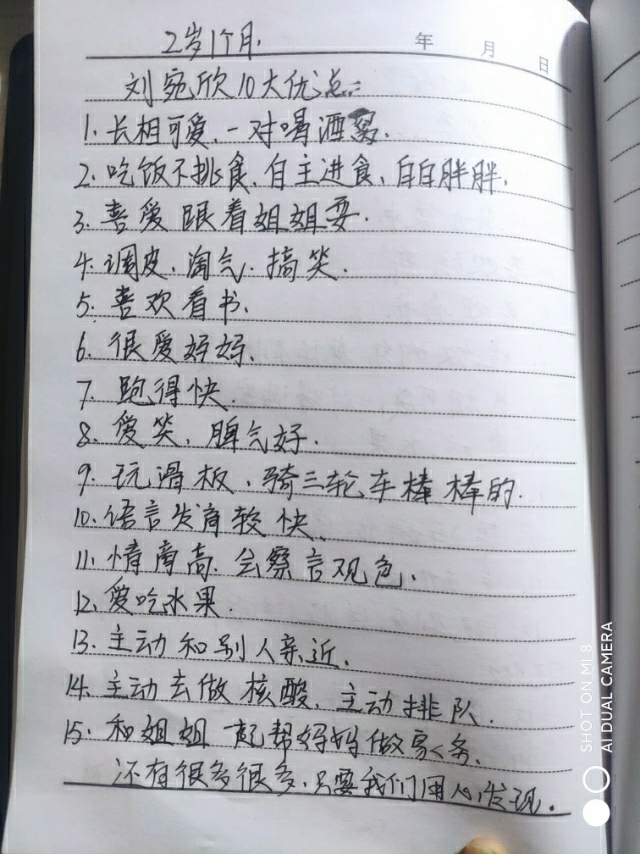 2岁1个月.
年 月 日
刘宛欣10大优点:
1.长相可爱.一对喝酒窝.
2.吃饭不挑食.自主进食.白白胖胖.
3.喜爱跟着姐姐耍.
4.调皮.淘气.搞笑.
5.喜欢看书.
6.很爱妈妈.
7.跑得快.
8.爱笑.脾气好.
9.玩滑板.骑三轮车棒棒的.
10.语言发育较快.
11.情商高.会察言观色.
12.爱吃水果.
13.主动和别人亲近.
14.主动去做核酸.主动排队.
15.和姐姐一起帮妈妈做家务.
还有很多很多.只要我们用心发现.
SHOT ON MI 8
AI DUAL CAMERA